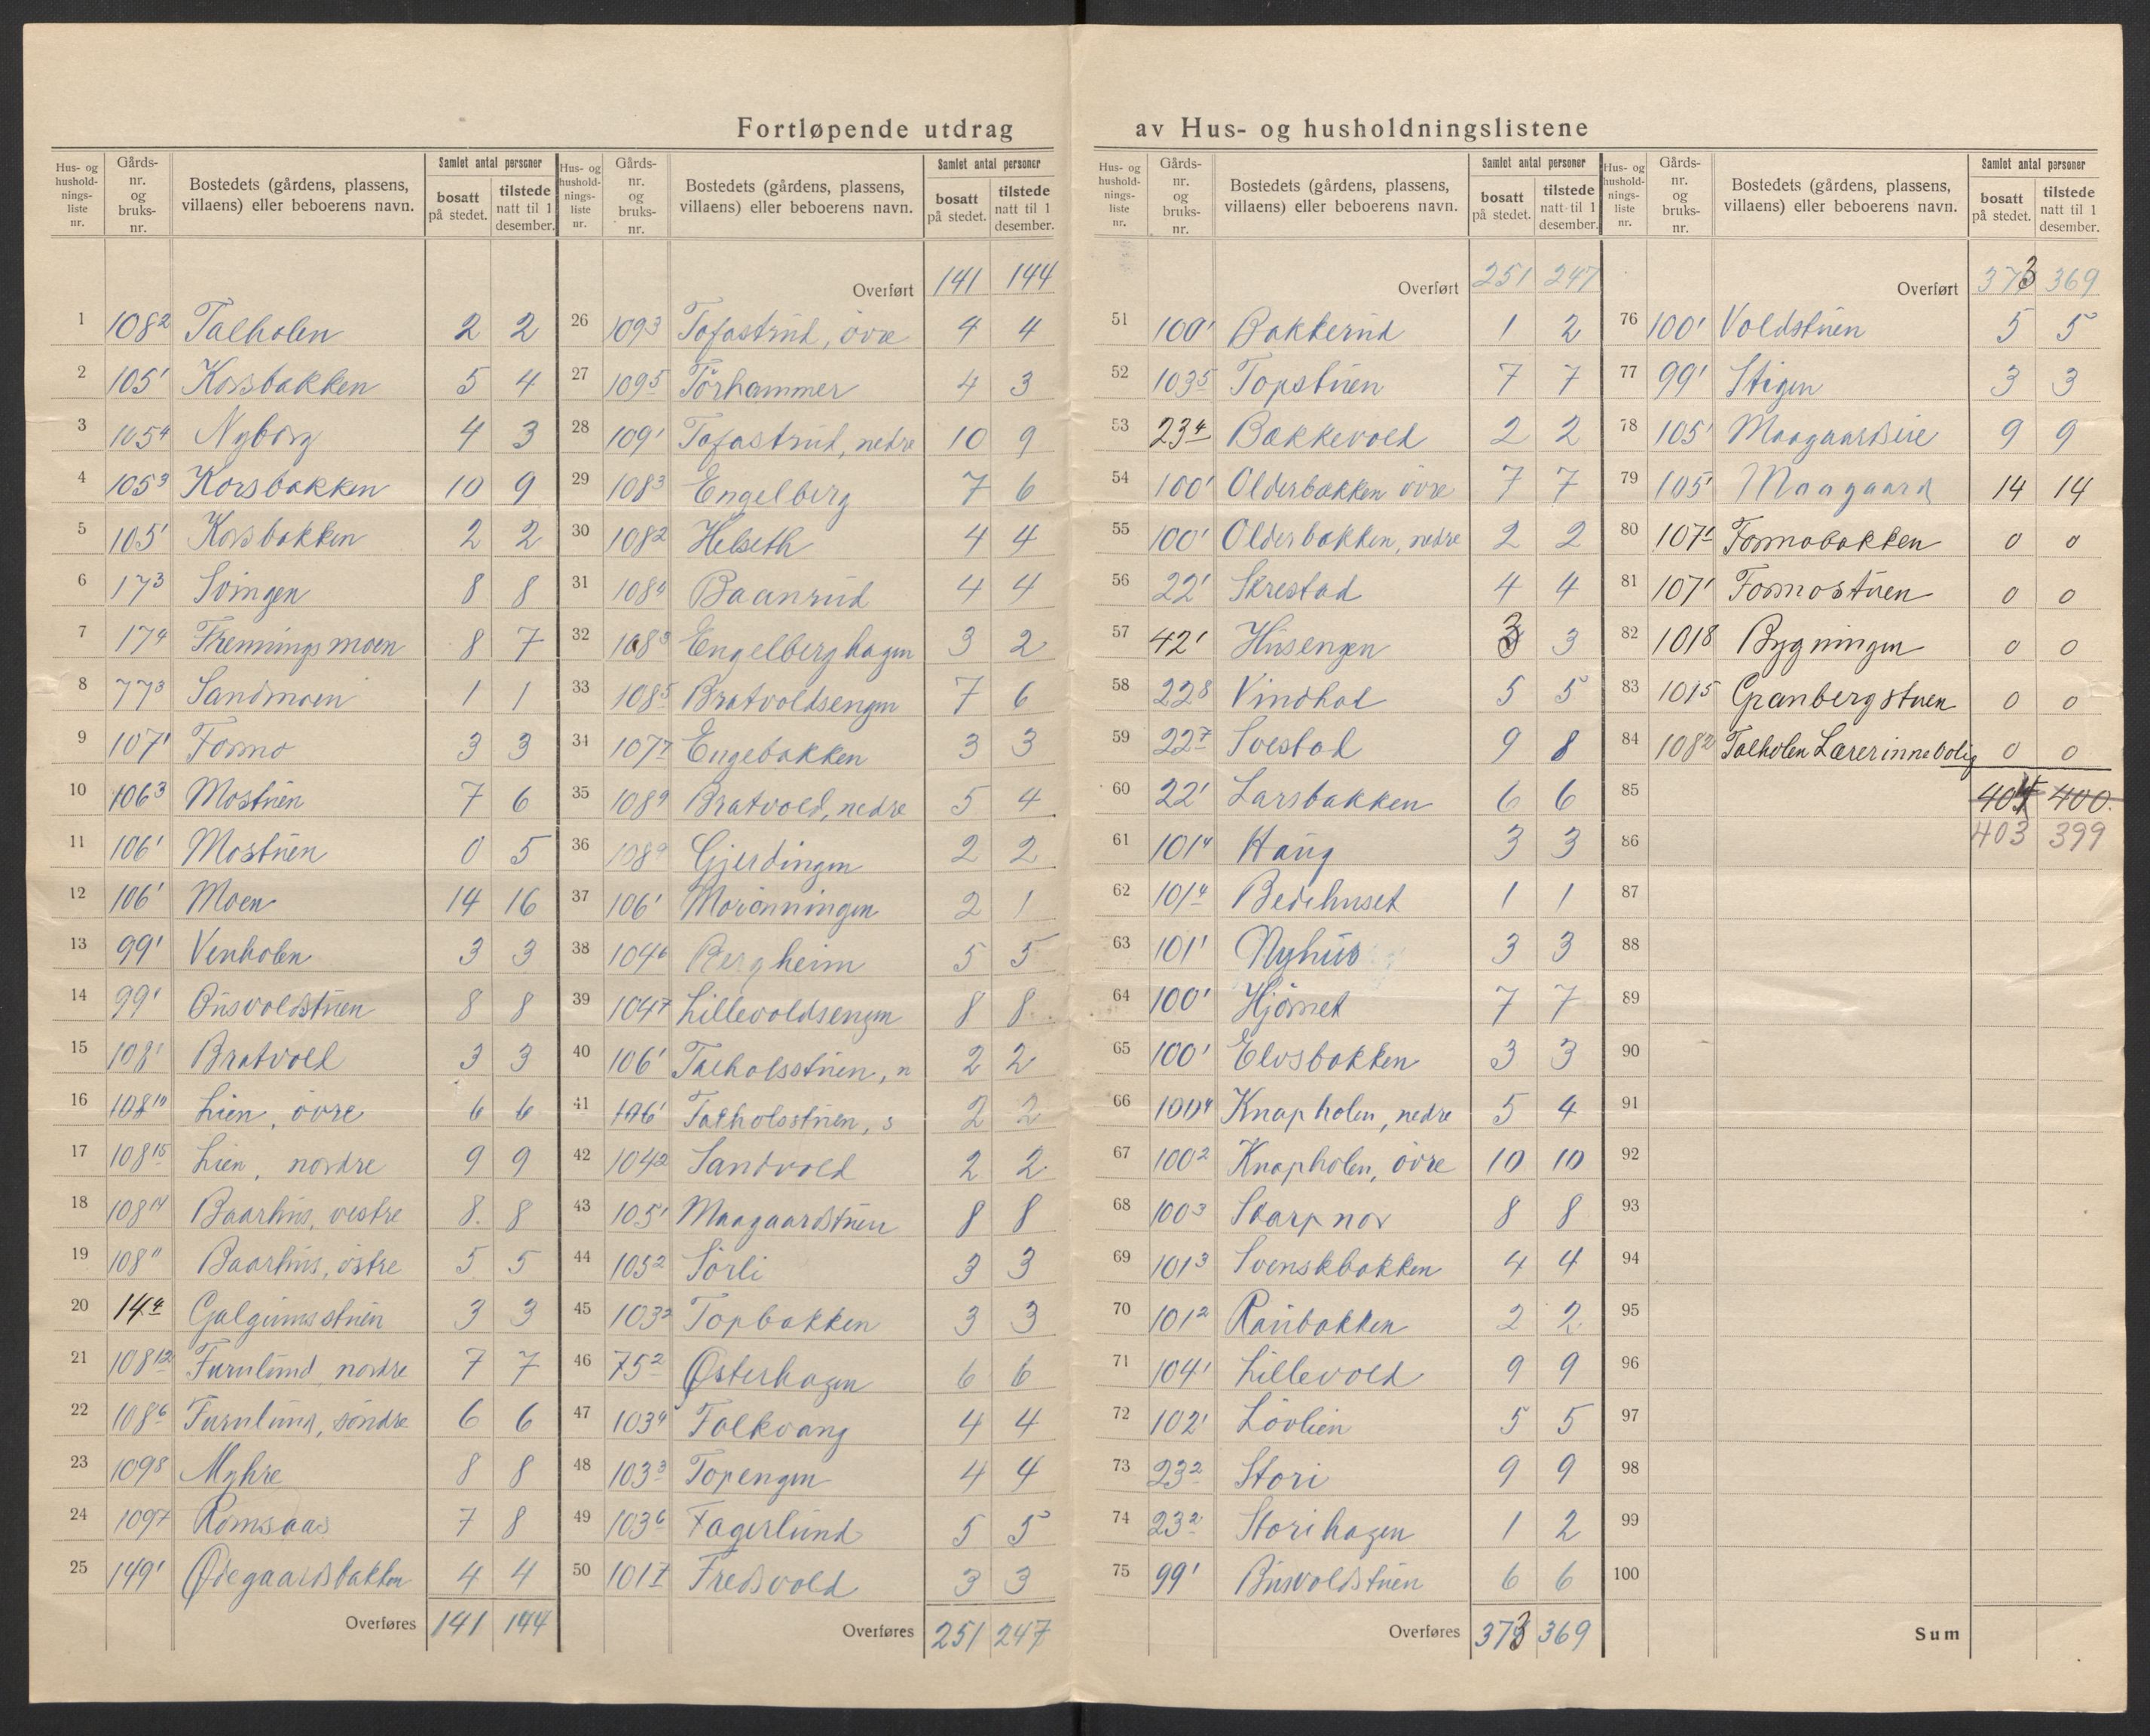 Fortløpende utdrag av Hus- og husholdningslistene
Hus- og husholdnings-liste nr. | Gårds-nr. og bruks-nr. | Bostedets (gårdens, plassens, villaens) eller beboerens navn. | Samlet antal personer | bosatt på stedet. | tilstede natt til 1 desember.
1 108² Talholen 2 2
2 105¹ Korsbakken 5 4
3 105⁴ Nyborg 4 3
4 105³ Korsbakken 10 9
5 105¹ Korsbakken 2 2
6 17³ Svingen 8 8
7 17⁴ Flemmingsmoen 8 7
8 77³ Sandmoen 1 1
9 107¹ Formo 3 3
10 106³ Mostuen 7 6
11 106¹ Mostuen 0 5
12 106¹ Moen 14 16
13 99¹ Venholen 3 3
14 99¹ Busvoldstuen 8 8
15 108¹ Bratvold 3 3
16 108¹⁰ Lien, övre 6 6
17 108¹⁵ Lien, nordre 9 9
18 108¹⁴ Baarhus, vestre 8 8
19 108¹¹ Baarhus, östre 5 5
20 14⁴ Galgumsstuen 3 3
21 108¹² Furulund, nordre 7 7
22 108⁶ Furulund, söndre 6 6
23 109⁸ Myhre 8 8
24 109⁷ Romsaas 7 8
25 149¹ Ødegaardsbakken 4 4
Overføres 141 144
Hus- og husholdnings-liste nr. | Gårds-nr. og bruks-nr. | Bostedets (gårdens, plassens, villaens) eller beboerens navn. | Samlet antal personer | bosatt på stedet. | tilstede natt til 1 desember.
Overført 141 144
26 109³ Tofastrud, övre 4 4
27 109⁵ Törhammer 4 3
28 109¹ Tofastrud, nedre 10 9
29 108³ Engelberg 7 6
30 108² Helseth 4 4
31 108⁴ Baanrud 4 4
32 108³ Engelberghagen 3 2
33 108⁵ Bratvoldsengen 7 6
34 107⁷ Engebakken 3 3
35 108⁹ Bratvold, nedre 5 4
36 108⁹ Gjerdingen 2 2
37 106¹ Morönningen 2 1
38 104⁶ Bergheim 5 5
39 104⁷ Lillevoldsengen 8 8
40 106¹ Talholsstuen, n 2 2
41 106¹ Talholsstuen, s 2 2
42 104² Sandvold 2 2
43 105¹ Maagaardstuen 8 8
44 105² Sörli 3 3
45 103² Topbakken 3 3
46 75² Østerhagen 6 6
47 103⁴ Folkvang 4 4
48 103³ Topengen 4 4
49 103⁶ Fagerlund 5 5
50 101⁷ Fredsvold 3 3
Overføres 251 247
Hus- og husholdnings-liste nr. | Gårds-nr. og bruks-nr. | Bostedets (gårdens, plassens, villaens) eller beboerens navn. | Samlet antal personer | bosatt på stedet. | tilstede natt til 1 desember.
Overført 251 247
51 100¹ Bakkerud 1 2
52 103⁵ Topstuen 7 7
53 23⁴ Bakkevold 2 2
54 100¹ Olderbakken övre 7 7
55 100¹ Olderbakken, nedre 2 2
56 22¹ Skrestad 4 4
57 42¹ Husengen 3 3
58 22⁸ Vindhol 5 5
59 22⁷ Svestad 9 8
60 22¹ Larsbakken 6 6
61 101⁴ Haug 3 3
62 101⁴ Bedehuset 1 1
63 101¹ Nyhus 3 3
64 100¹ Hjörnet 7 7
65 100¹ Elvsbakken 3 3
66 100⁴ Knapholen, nedre 5 4
67 100² Knapholen, övre 10 10
68 100³ Skarpnor 8 8
69 101³ Svenskbakken 4 4
70 101² Raubakken 2 2
71 104¹ Lillevold 9 9
72 102¹ Lövlien 5 5
73 23² Stori 9 9
74 23² Storihagen 1 2
75 99¹ Busvoldstuen 6 6
Overføres 373 369
Hus- og husholdnings-liste nr. | Gårds-nr. og bruks-nr. | Bostedets (gårdens, plassens, villaens) eller beboerens navn. | Samlet antal personer | bosatt på stedet. | tilstede natt til 1 desember.
Overført 373 369
76 100¹ Voldstuen 5 5
77 99¹ Stigen 3 3
78 105¹ Maagaardseie 9 9
79 105¹ Maagaard 14 14
80 107¹ Formobakken 0 0
81 107¹ Formostuen 0 0
82 101⁸ Bygningen 0 0
83 101⁵ Granbergstuen 0 0
84 108² Talholen Lærerinnebolig 0 0
85 404 400
86 403 399
87
88
89
90
91
92
93
94
95
96
97
98
99
100
Sum